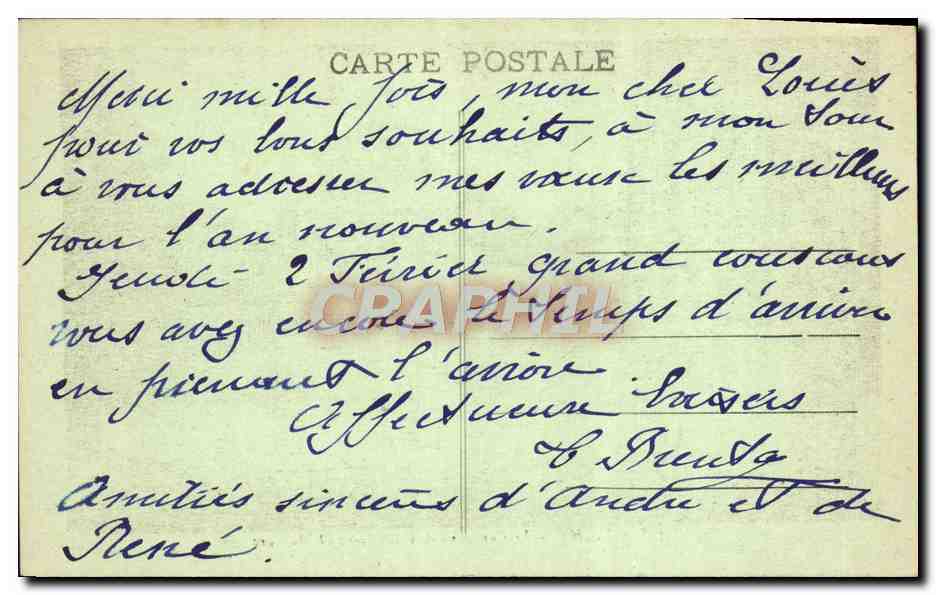 CARTE POSTALE
Merci mille fois, mon cher Louis
pour vos bons souhaits, à mon tour
à vous adresser mes vœux les meilleurs
pour l'an nouveau.
Jeudi 2 Février grand couscous
vous avez encore le temps d'arriver
en prenant l'avion
Affectueux baisers
Amitiés sincères d'André et de
René.
CRAPHIL